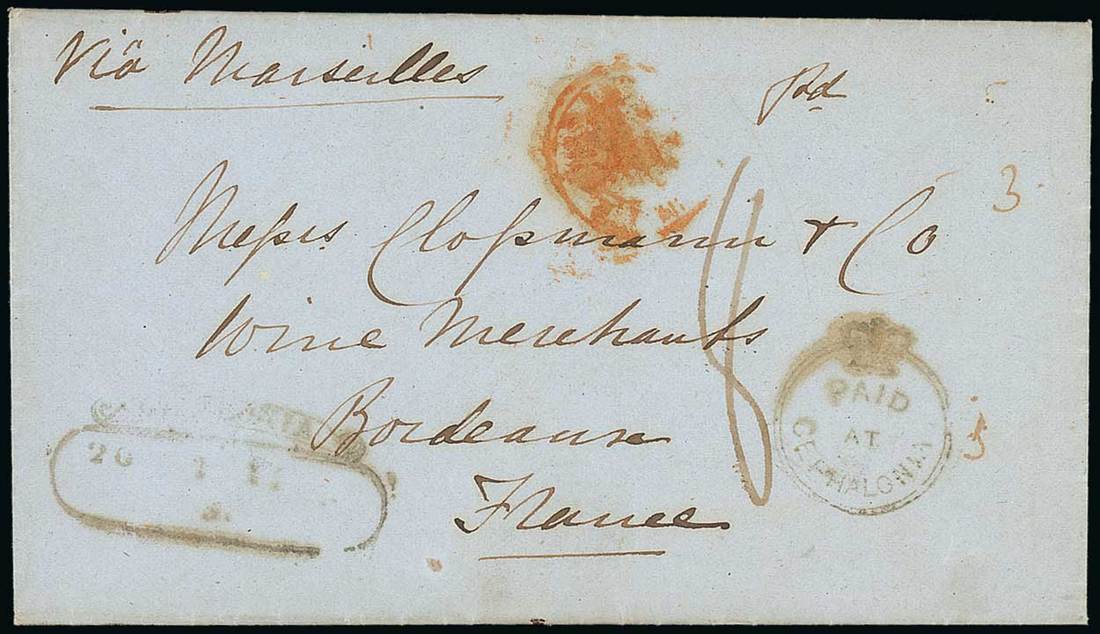 Viâ Marseilles
Pd
3
Messrs Clossmann & Co
Wine Merchants
Bordeaux
France
8
PAID
AT
CEPHALONIA
5
20